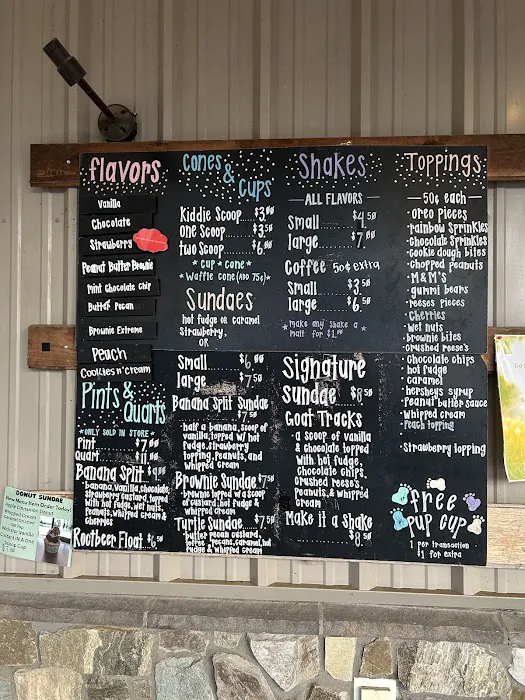 flavors
Vanilla
Chocolate
Strawberry
Peanut Butter Brownie
Mint Chocolate chip
Butter Pecan
Brownie Extreme
Peach
Cookies n' cream
Pints & Quarts
*ONLY SOLD IN STORE*
Pint $7.00
Quart
Banana Split
banana, vanilla, chocolate,
strawberry custard, topped
with hot fudge, wet nuts,
peanuts, whipped cream &
cherries
Rootbeer Float
CONES & CUPS
Kiddie Scoop...$3.00
One Scoop...$3.50
two Scoop...$6.00
*CUP *CONE*
*Waffle Cone (ADD 75¢)*
Sundaes
hot fudge or caramel
Strawberry,
OR
Small $6.00
large $7.50
Banana Split Sundae
$7.50
half a banana, scoop of
vanilla, topped w/ hot
fudge, strawberry
topping, peanuts, and
whipped cream
Brownie Sundae $7.50
brownie topped w a scoop
of custard, hot fudge &
whipped cream
Turtle Sundae $7.50
butter pecan custard,
toffee, pecans, caramel, hot
fudge & whipped cream
Shakes
ALL FLAVORS
Small $4.50
large $7.00
Coffee 50¢ extra
Small $3.50
large $6.50
*make any shake a
malt for $1.00*
Signature
Sundae $8.50
Goat Tracks
a scoop of vanilla
& chocolate topped
with hot fudge,
chocolate chips
crushed reese's,
Peanuts, & whipped
cream
Make it a Shake
$8.50
TOPPINGS
50¢ each
•oreo pieces
•rainbow sprinkles
•chocolate sprinkles
•cookie dough bites
•chopped peanuts
•M&M's
•gummi bears
•reeses pieces
Cherries
•wet nuts
•brownie bites
•crushed reese's
•Chocolate chips
•hot fudge
•caramel
•hersheys syrup
•Peanut butter sauce
•Whipped cream
•Peach topping
•Strawberry topping
free
PUP CUP
1 per transaction
$1 for extra
DONUT SUNDAE
New Menu Item Order Today!